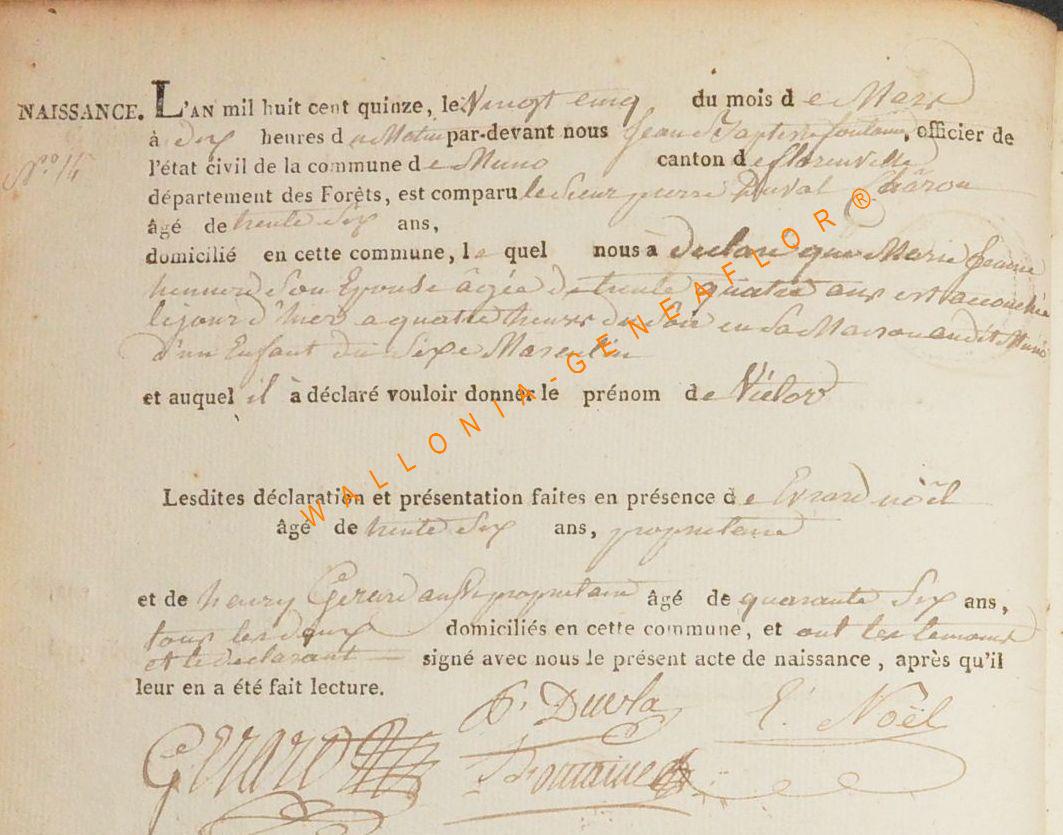 NAISSANCE. L'AN mil huit cent quinze, le Vingt cinq du mois de Mars
N° 14
à dix heures du Matin par-devant nous Jean Baptiste fontaine, officier de
l'état civil de la commune de Muno canton de florenville
département des Forêts, est comparu le Sieur pierre Duval Châron
âgé de trente Six ans,
domicilié en cette commune, le quel nous à déclaré que Marie Jeanne
Son Epouse âgée de trente quatre ans est accouchée
le jour d'hier a quatre heures du Soir en Sa Maison audit Muno
d'un Enfant du Sexe Masculin
et auquel il à déclaré vouloir donner le prénom de Victor
Lesdites déclaration et présentation faites en présence de Evrard noël
âgé de trente Six ans, proprietaire
et de henry Gerard aussi proprietaire âgé de quarante Six ans,
tous les deux domiciliés en cette commune, et ont les temoins
et le declarant signé avec nous le présent acte de naissance, après qu'il
leur en a été fait lecture.
P. E. Noël
GERARD Fontaine
WALLONIA-GENEAFLOR®